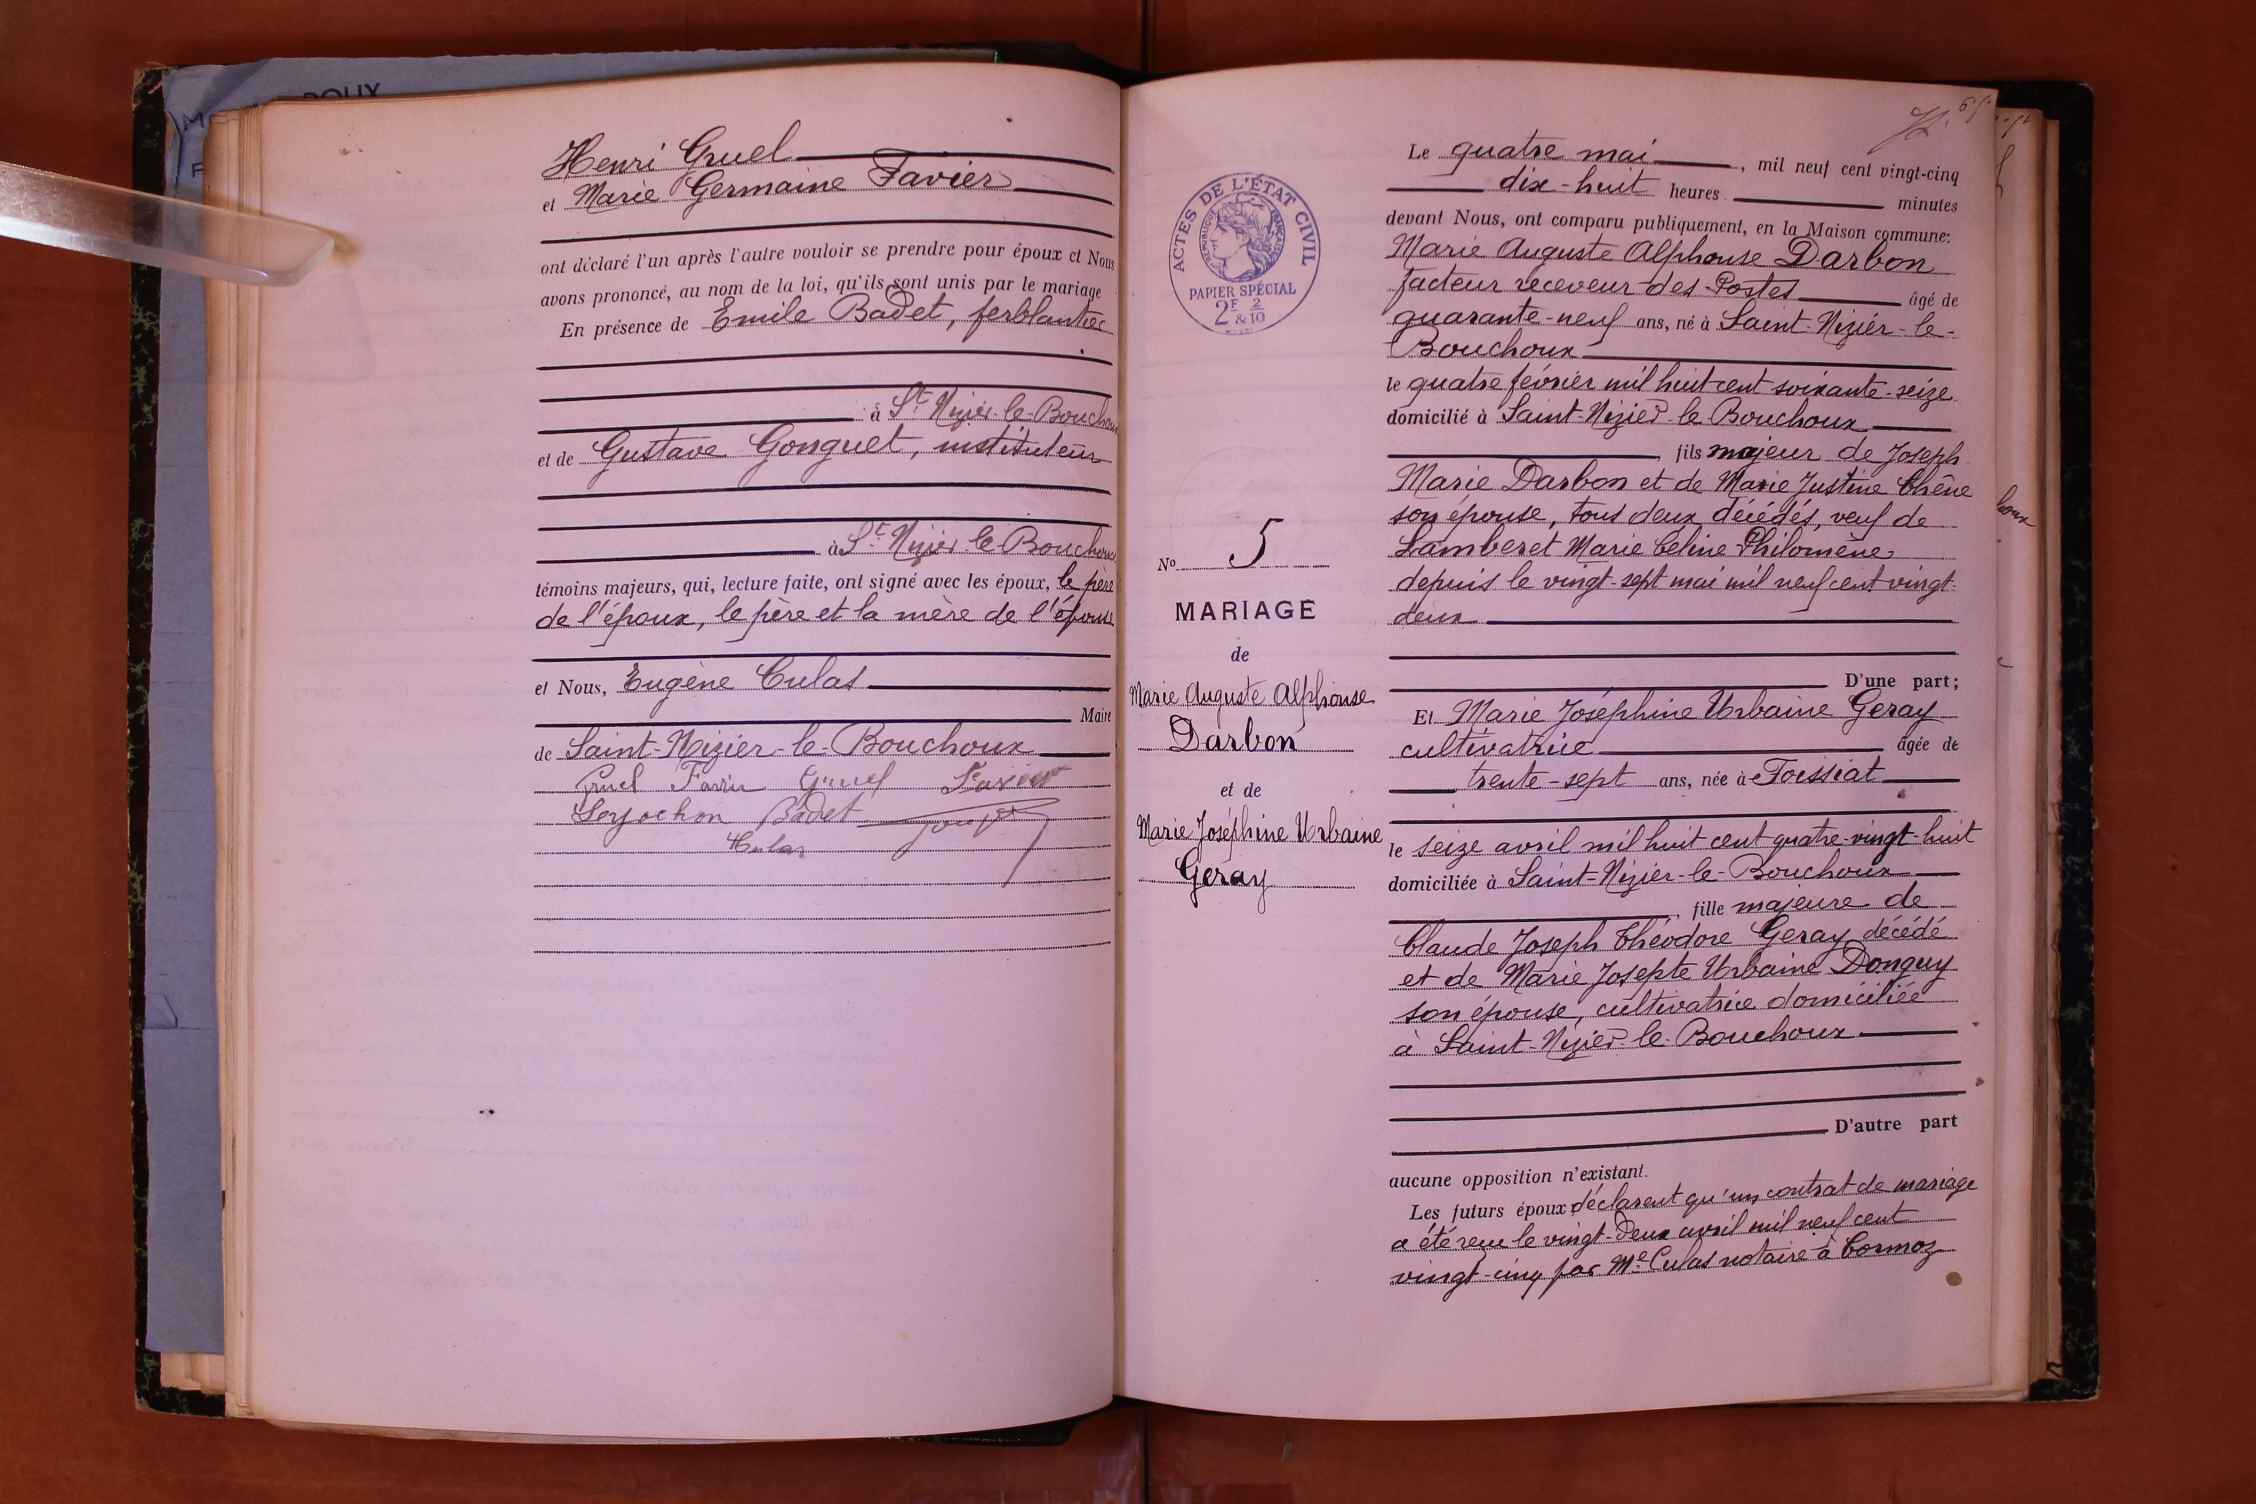 Henri Gruel
et Marie Germaine Favier
ont déclaré l'un après l'autre vouloir se prendre pour époux et Nous
avons prononcé, au nom de la loi, qu'ils sont unis par le mariage
En présence de Emile Badet, ferblantier
à St Nizier-le-Bouchoux
et de Gustave Gonguet, instituteur
à St Nizier-le-Bouchoux
témoins majeurs, qui, lecture faite, ont signé avec les époux, le père
de l'époux, le père et la mère de l'épouse
et Nous, Eugène Culas
Maire
de Saint-Nizier-le-Bouchoux
Gruel Favier Gruel Favier
Badet
Culas
ACTES DE L'ÉTAT CIVIL
RÉPUBLIQUE FRANÇAISE
PAPIER SPÉCIAL
2F & 2/10
No 5
MARIAGE
de
Marie Auguste Alphonse
Darbon
et de
Marie Joséphine Urbaine
Geray
Le quatre mai, mil neuf cent vingt-cinq
dix-huit heures minutes
devant Nous, ont comparu publiquement, en la Maison commune:
Marie Auguste Alphonse Darbon
facteur receveur des Postes âgé de
quarante-neuf ans, né à Saint-Nizier-le-
Bouchoux
le quatre février mil huit cent soixante-seize
domicilié à Saint-Nizier-le-Bouchoux
, fils majeur de Joseph
Marie Darbon et de Marie Justine Chêne
son épouse, tous deux décédés, veuf de
Lamberet Marie Celine Philomène
depuis le vingt-sept mai mil neuf cent vingt-
deux
D'une part;
Et Marie Joséphine Urbaine Geray
cultivatrice âgée de
trente-sept ans, née à Foissiat
le seize avril mil huit cent quatre-vingt-huit
domiciliée à Saint-Nizier-le-Bouchoux
, fille majeure de
Claude Joseph Théodore Geray décédé
et de Marie Josepte Urbaine Donguy
son épouse, cultivatrice domiciliée
à Saint-Nizier-le-Bouchoux
D'autre part
aucune opposition n'existant.
Les futurs époux déclarent qu'un contrat de mariage
a été reçu le vingt-deux avril mil neuf cent
vingt-cinq par Me Culas notaire à Cormoz